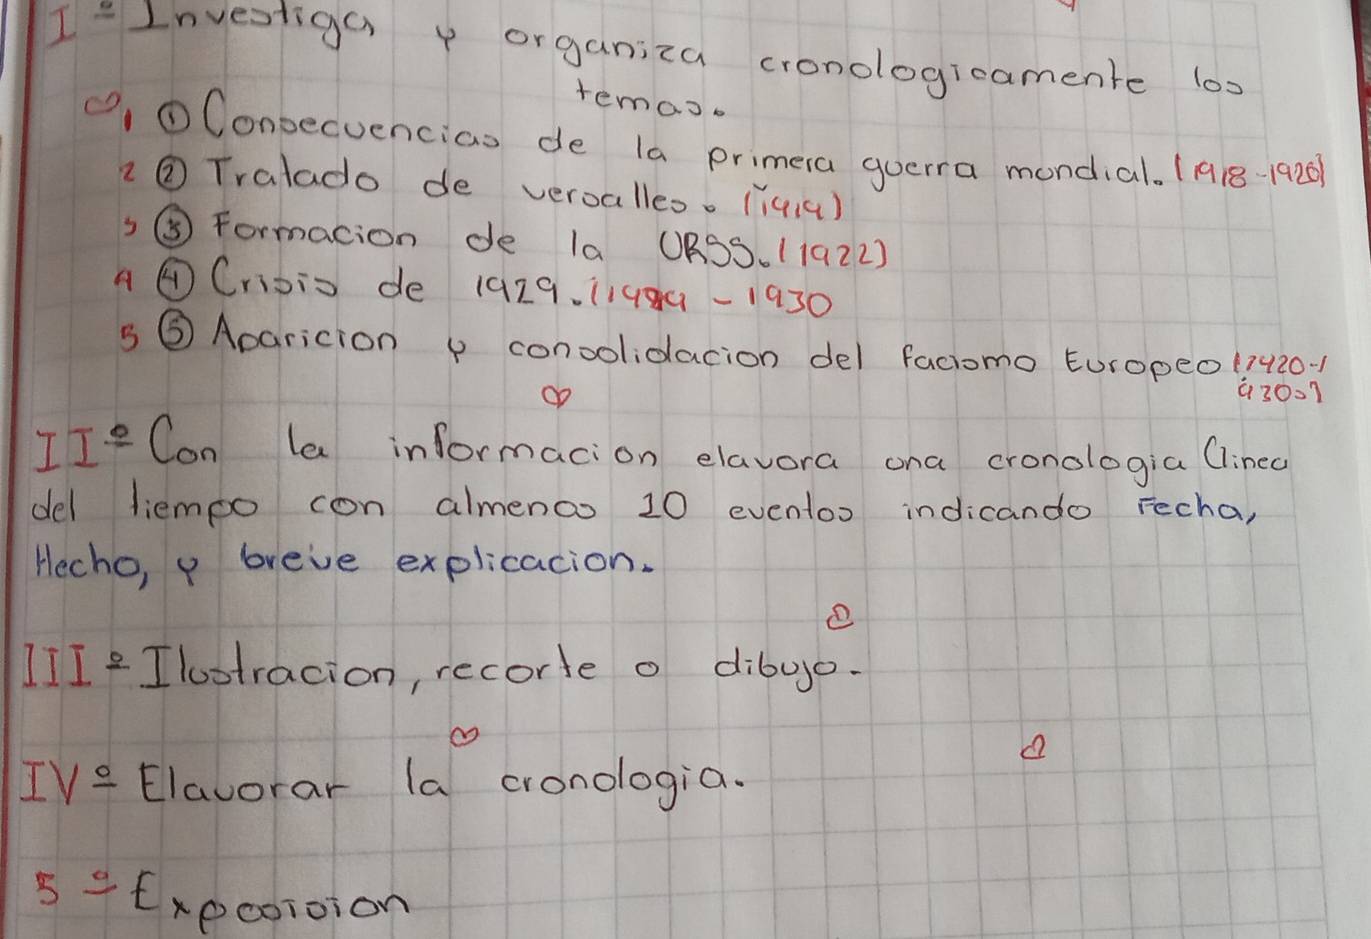 I º Investiga y organiza cronologicamente los
temas.
1 ① Consecuencias de la primera guerra mondial. (1918-1920)
2 ② Tratado de versalles. (1919)
3 ③ Formacion de la URSS. (1922)
4 ④ Crisis de 1929. (1929 - 1930
5 ⑤ Aparicion y consolidacion del facismo Europeo (1920-1
930s)
II º Con la informacion elavora una cronologia (linea
del tiempo con almenos 10 eventos indicando Fecha,
Hecho, y breve explicacion.
III º Ilustracion, recorte o dibujo.
IV º Elavorar la cronologia.
5 º Exposision